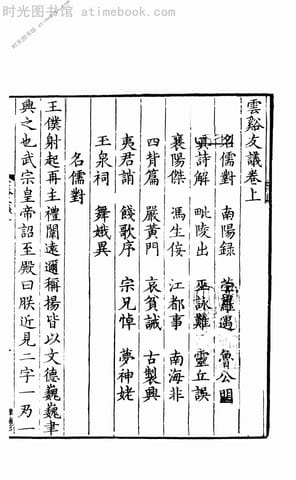 时光图书馆 - atimebook.com
雲谿友議卷上
名儒對 南陽錄 苧蘿遇 魯公明
真詩解 毗陵出 巫詠難 靈丘誤
襄陽傑 馮生佞 江都事 南海非
四背篇 嚴黃門 哀貧誡 古製興
夷君誚 餞歌序 宗兄悼 夢神姥
王泉祠 舞娥異
名儒對
王僕射起再主禮闈遠邇稱揚皆以文德巍巍聿
興之也武宗皇帝詔至殿曰朕近見二字一乃一